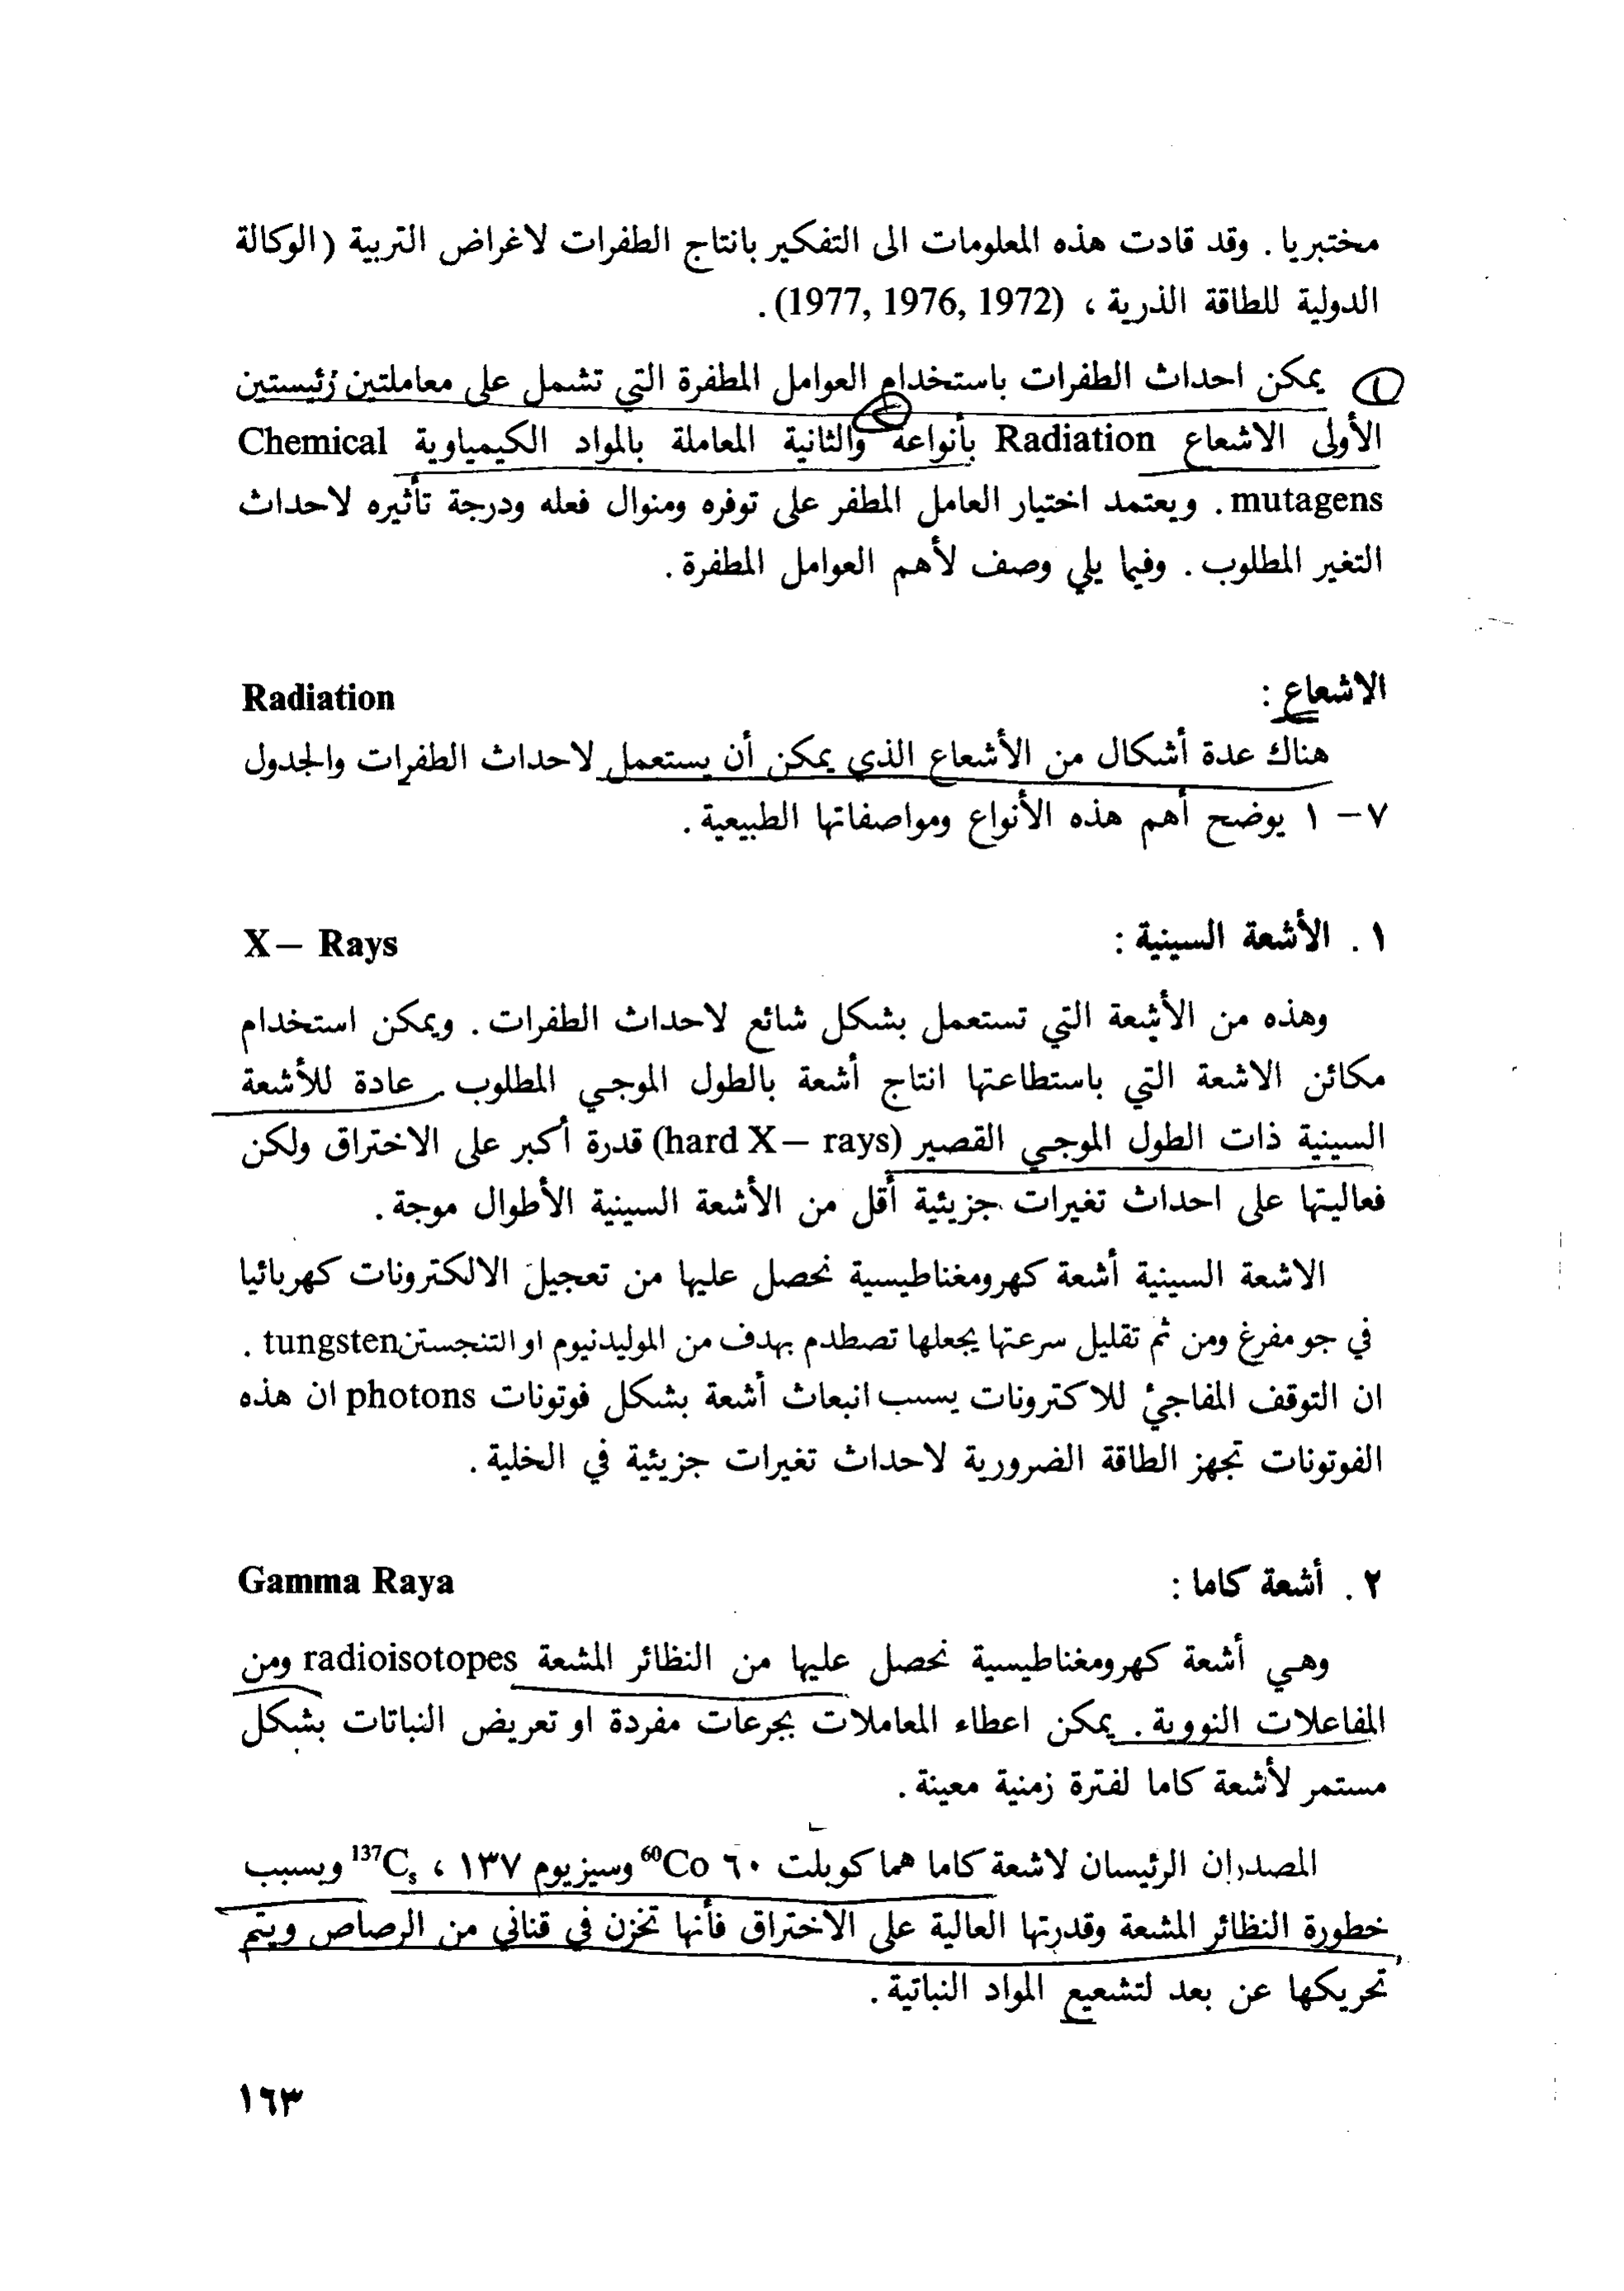 مختبريا . وقد قادت هذه المعلومات الى التفكير بانتاج الطفرات لاغراض التربية (الوكالة
الدولية للطاقة الذرية ، (1972 ,1976 ,1977).
① يمكن احداث الطفرات باستخدام العوامل المطفرة التي تشمل على معاملتين رئيستين
الأولى الاشعاع Radiation بأنواعه والثانية المعاملة بالمواد الكيمياوية Chemical
mutagens . ويعتمد اختيار العامل المطفر على توفره ومنوال فعله ودرجة تأثيره لاحداث
التغير المطلوب . وفيما يلي وصف لأهم العوامل المطفرة .
الاشعاع : Radiation
هناك عدة أشكال من الأشعاع الذي يمكن أن يستعمل لاحداث الطفرات والجدول
٧ – ١ يوضح أهم هذه الأنواع ومواصفاتها الطبيعية .
١ . الأشعة السينية : X – Rays
وهذه من الأشعة التي تستعمل بشكل شائع لاحداث الطفرات . ويمكن استخدام
مكائن الاشعة التي باستطاعتها انتاج أشعة بالطول الموجي المطلوب . عادة للأشعة
السينية ذات الطول الموجي القصير (hard X – rays) قدرة أكبر على الاختراق ولكن
فعاليتها على احداث تغيرات جزيئية أقل من الأشعة السينية الأطوال موجة .
الاشعة السينية أشعة كهرومغناطيسية نحصل عليها من تعجيل الالكترونات كهربائيا
في جو مفرغ ومن ثم تقليل سرعتها يجعلها تصطدم بهدف من الموليدنيوم او التنجستن tungsten .
ان التوقف المفاجئ للاكترونات يسبب انبعاث أشعة بشكل فوتونات photons ان هذه
الفوتونات تجهز الطاقة الضرورية لاحداث تغيرات جزيئية في الخلية .
٢ . أشعة كاما : Gamma Raya
وهي أشعة كهرومغناطيسية نحصل عليها من النظائر المشعة radioisotopes ومن
المفاعلات النووية . يمكن اعطاء المعاملات بجرعات مفردة او تعريض النباتات بشكل
مستمر لأشعة كاما لفترة زمنية معينة .
المصدران الرئيسان لاشعة كاما هما كوبلت ٦٠ ⁶⁰Co وسيزيوم ١٣٧ ، ¹³⁷Cₛ وبسبب
خطورة النظائر المشعة وقدرتها العالية على الاختراق فأنها تخزن في قناني من الرصاص ويتم
تحريكها عن بعد لتشعيع المواد النباتية .
١٦٣